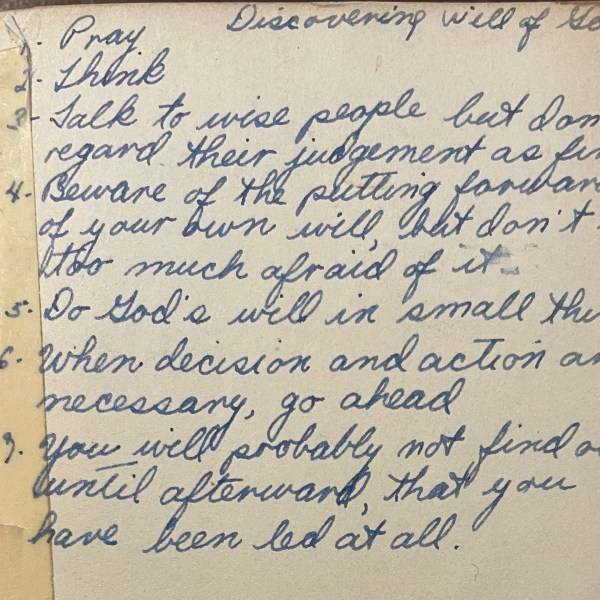 Discovering will of Go
1- Pray
2- Think
3- Talk to wise people but don
regard their judgement as fin
4- Beware of the putting forward
of your own will, but don't
too much afraid of it.
5- Do God's will in small thi
6- When decision and action a
necessary, go ahead
7. You will probably not find o
until afterward, that you
have been led at all.